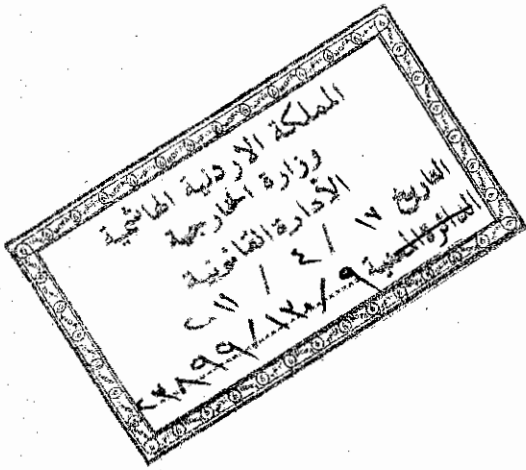 المملكة الاردنية الهاشمية
وزارة الخارجية
الأدارة القانونية
التاريخ ١٧ / ٤ / ٢٠١١
الدائرة المعنية ٩/١٣٠/٢٣٨٩٩